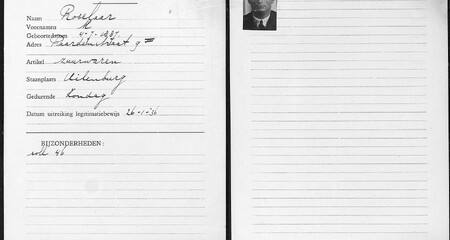 Naam Roselaar
Voornamen M
Geboortedatum 4-7-1887.
Adres Paardenstraat 9
Artikel zuurwaren
Staanplaats Uilenburg
Gedurende Zondag
Datum uitreiking legitimatiebewijs 26-1-'36
BIJZONDERHEDEN:
46